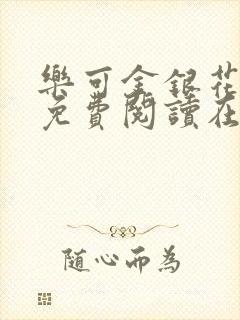 樂可金銀花
免費閱讀在
随心而為